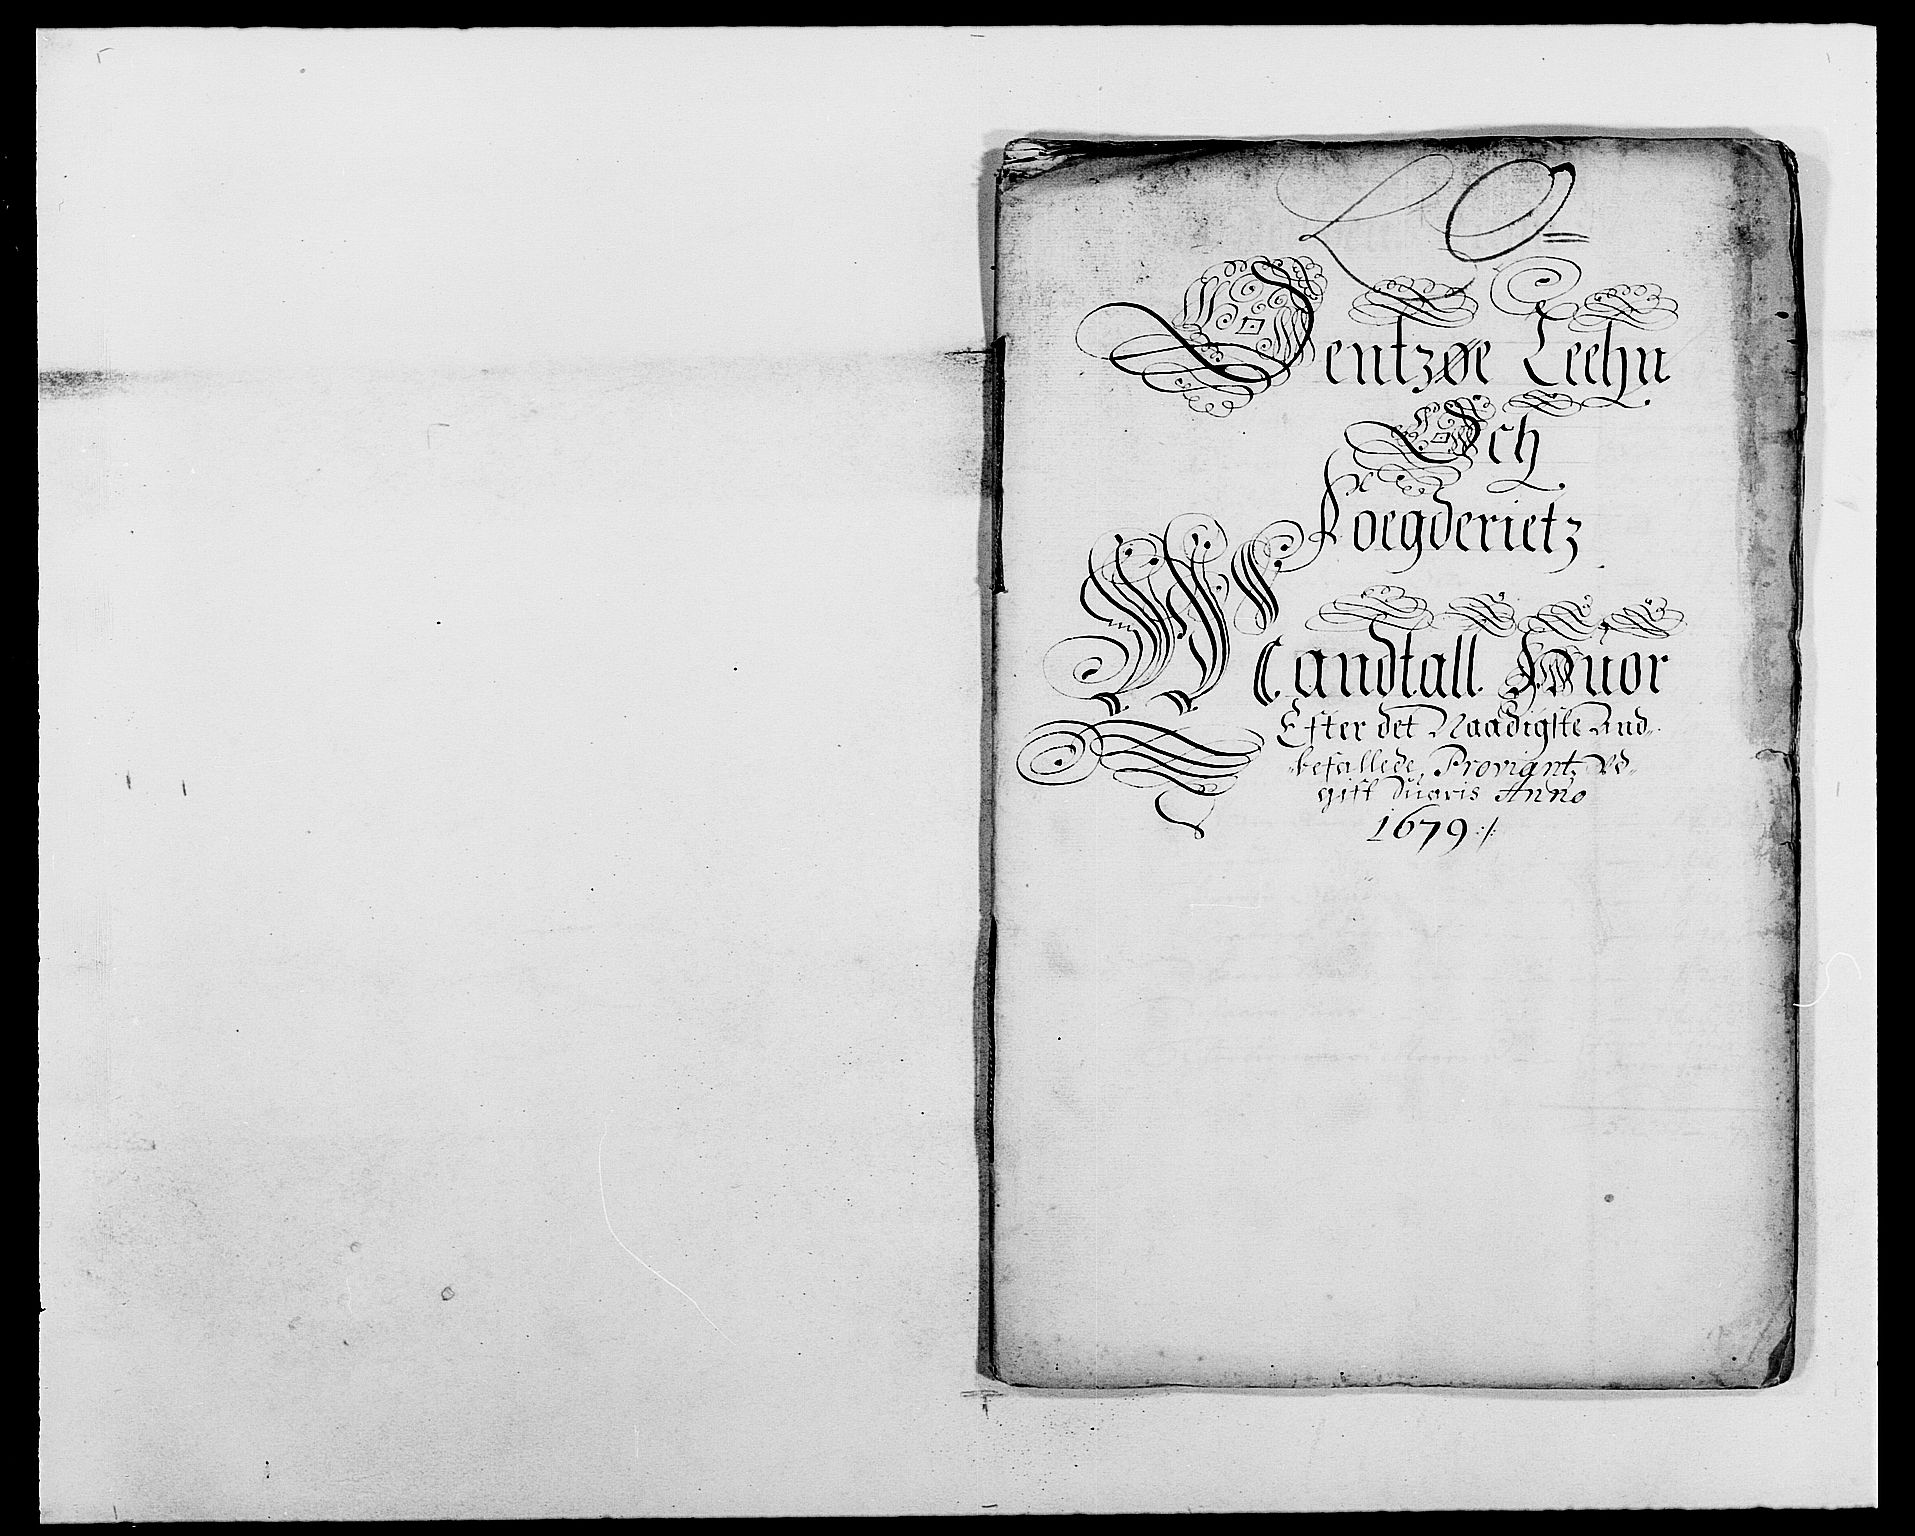 LO=
Jentzøe Leehn
Och
Foegderietz
Mandtall Huor
Efter det Naadigste And„
befallede, Proviant, Vd„
gift Suaris Anno
1679 ./.